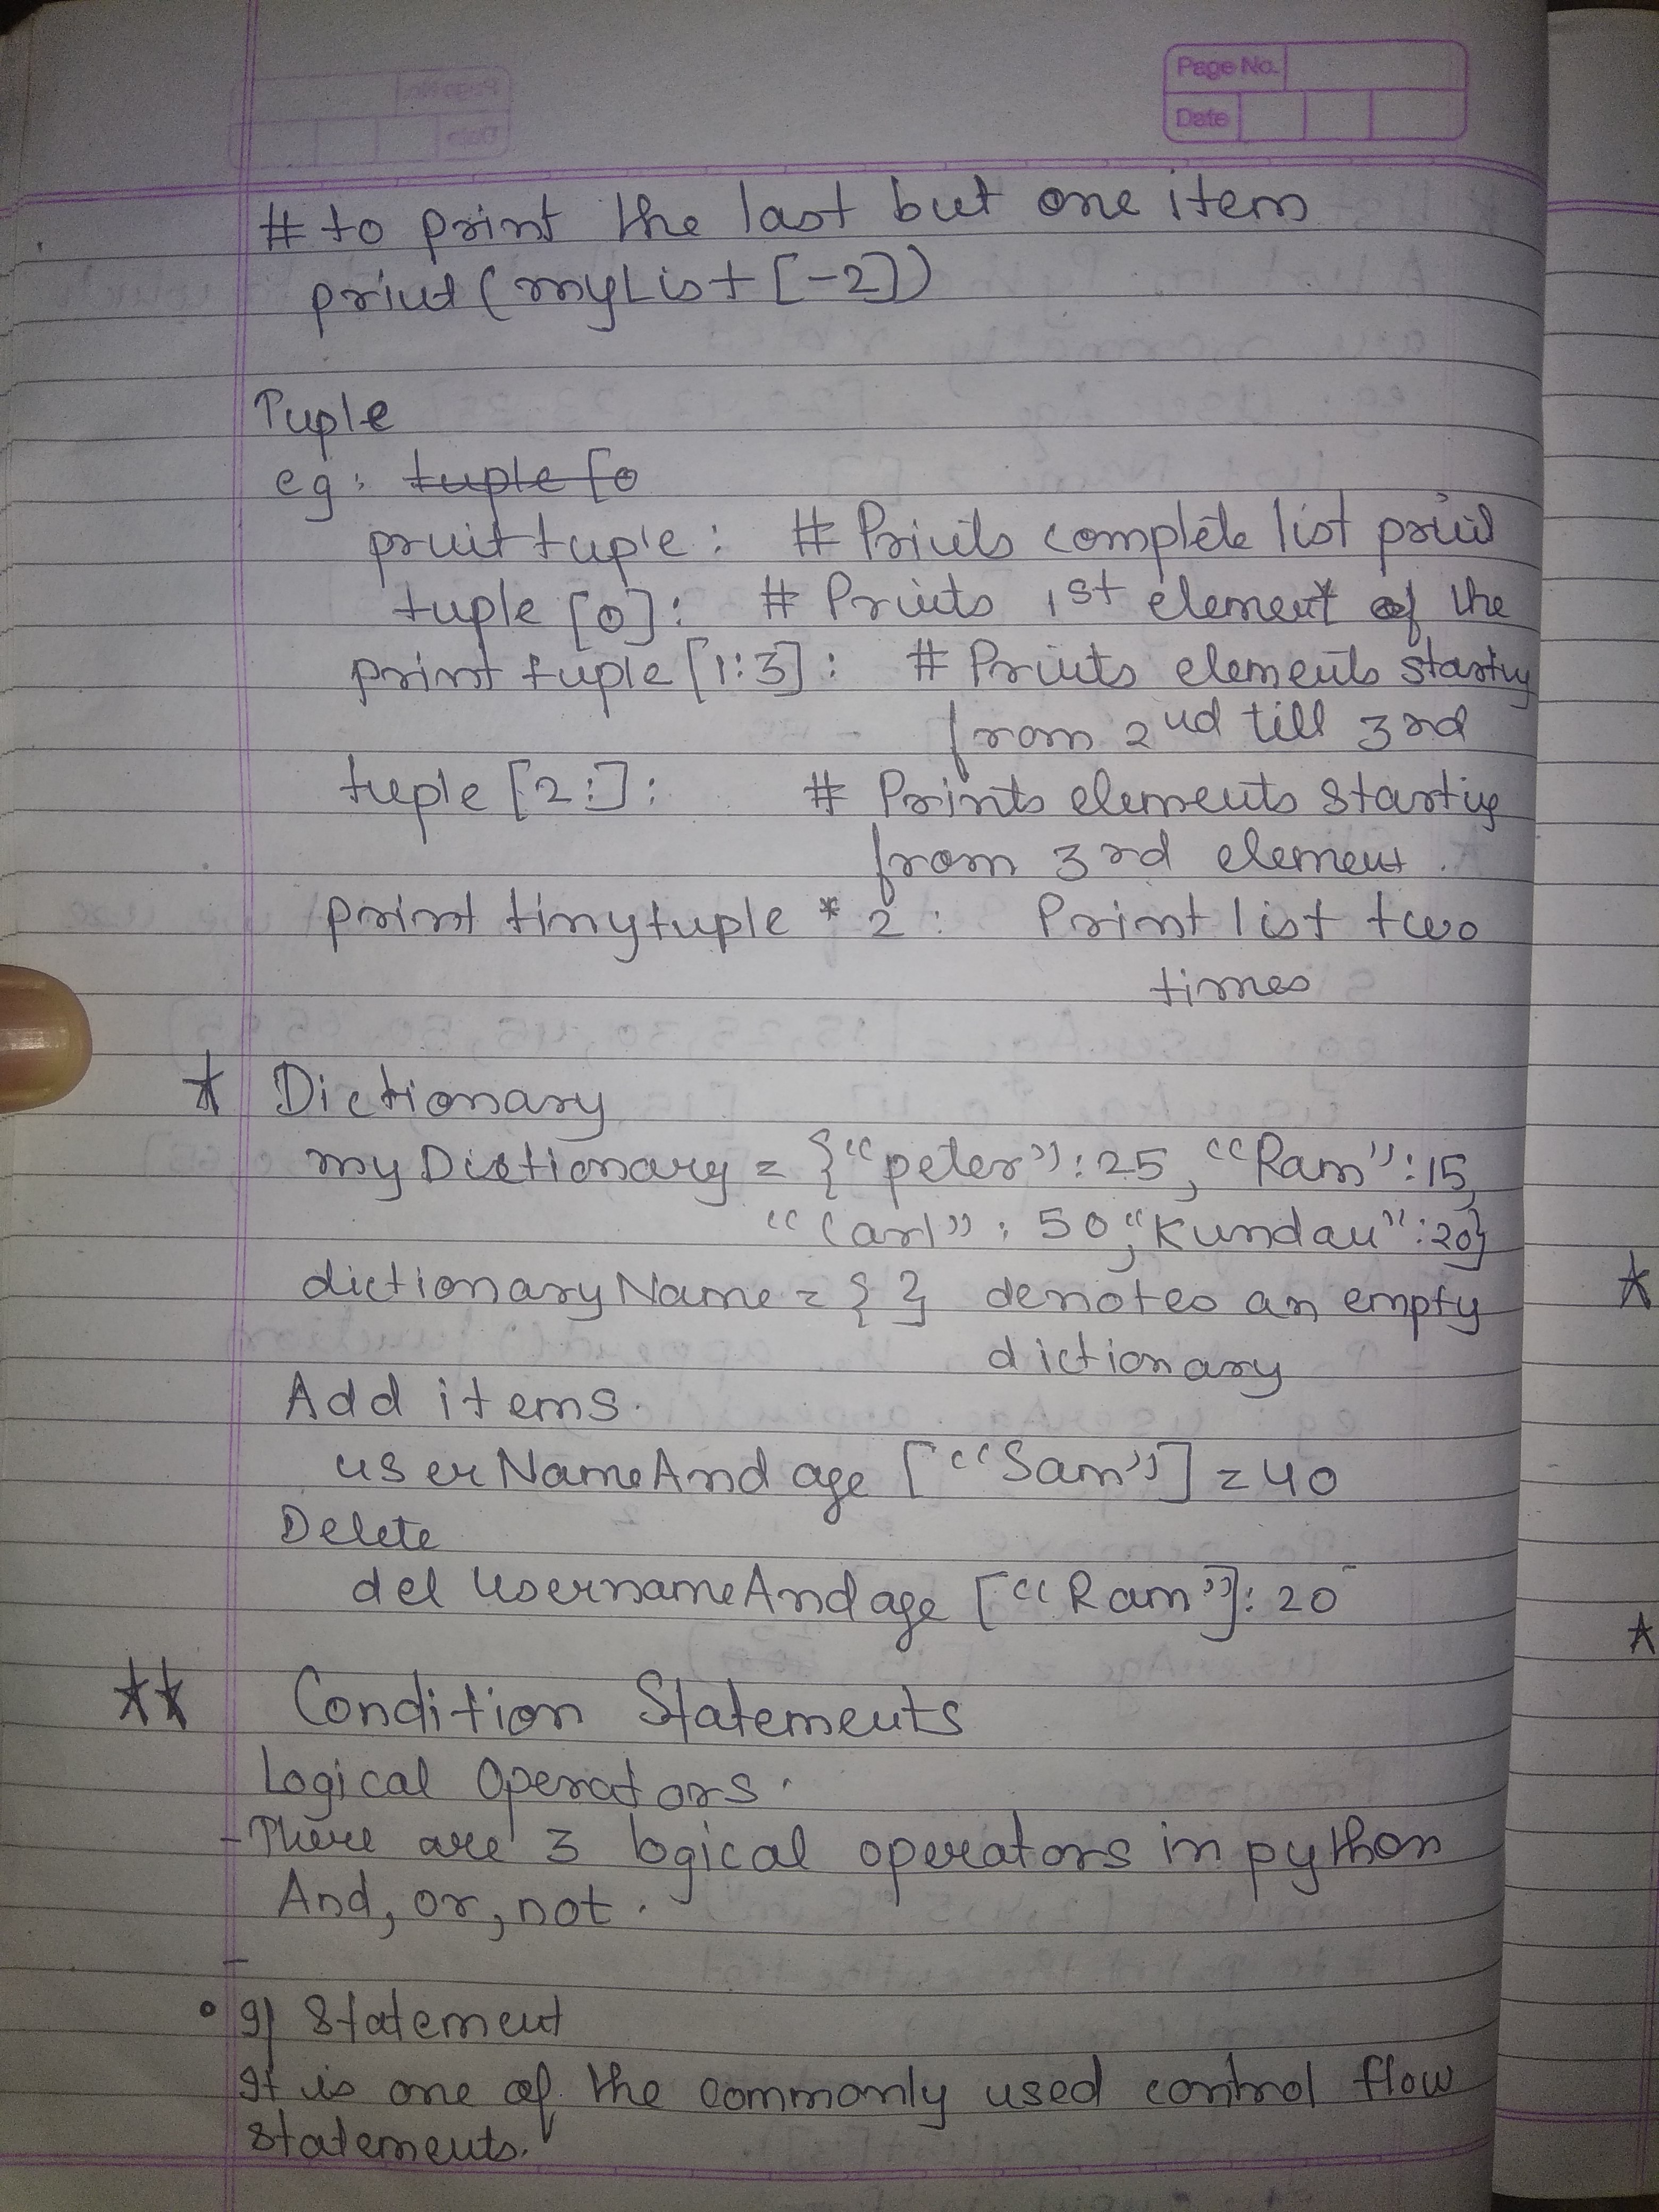 Page No.
Date
# to print the last but one item
print(myList[-2])
Tuple
eg: tuple [0
print tuple: # Prints complete list print
tuple [0]: # Prints 1st element of the
print tuple [1:3]: # Prints elements starting
from 2nd till 3rd
tuple [2:]: # Prints elements starting
from 3rd element.
print tinytuple * 2: Print list two
times
* Dictionary
myDictionary = {"peter":25, "Ram":15,
"Carl": 50, "Kundan":20}
dictionaryName = { } denotes an empty
dictionary
Add items.
userNameAndage ["Sam"] = 40
Delete
del UsernameAndage ["Ram"]: 20
** Condition Statements
Logical Operators.
-There are 3 logical operators in python
And, or, not.
-
• If Statement
It is one of the commonly used control flow
statements.